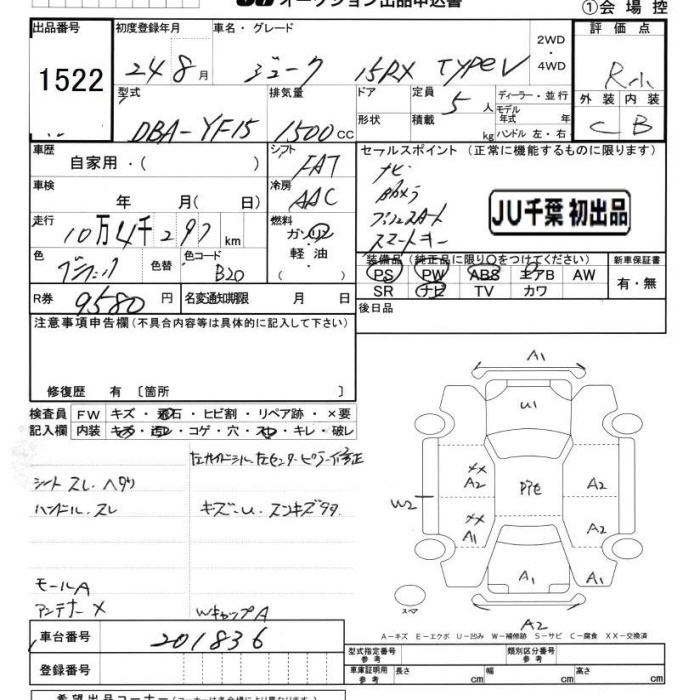 オークション出品申込書
①会場控
出品番号 初度登録年月 車名・グレード 評価点
1522 24 8月 ジューク 15RX TYPE V 2WD・4WD R
型式 排気量 ドア 定員 ディーラー・並行 外装 内装
DBA-YF15 1500cc 5人 モデル年式 年 C B
形状 積載 kg ハンドル 左・右
車歴 シフト セールスポイント (正常に機能するものに限ります)
自家用・( ) FAT ナビ
車検 冷房 Bカメラ
年 月( 日) AAC プッシュスタート JU千葉 初出品
走行 燃料 スマートキー
10万4千297km ガソリン
色 色替 色コード 軽油・
ブラック B20
装備品 (純正品に限り○をつけてください) 新車保証書
PS PW ABS エアB AW 有・無
SR ナビ TV カワ
R券 9580円 名変通知期限 月 日 後日品
注意事項申告欄(不具合内容等は具体的に記入して下さい)
修復歴 有 〔箇所 〕
検査員 FW キズ・飛石・ヒビ割・リペア跡・×要
記入欄 内装 キズ・汚レ・コゲ・穴・スレ・キレ・破レ
左サイドシル・左センターピラー修正
シート スレ・ヘタリ
ハンドル・スレ キズ・U・スンキズ
モールA
アンテナー× WキャップA
A1
U1
×× A2 Pite A2
W2
×× A1 A2
A1 A1
スペア
A2
A-キズ E-エクボ U-凹み W-補修跡 S-サビ C-腐食 XX-交換済
車台番号 201836
型式指定番号 参考 類別区分番号 参考
登録番号 車庫証明用 参考 長さ cm 幅 cm 高さ cm
希望出品コーナー